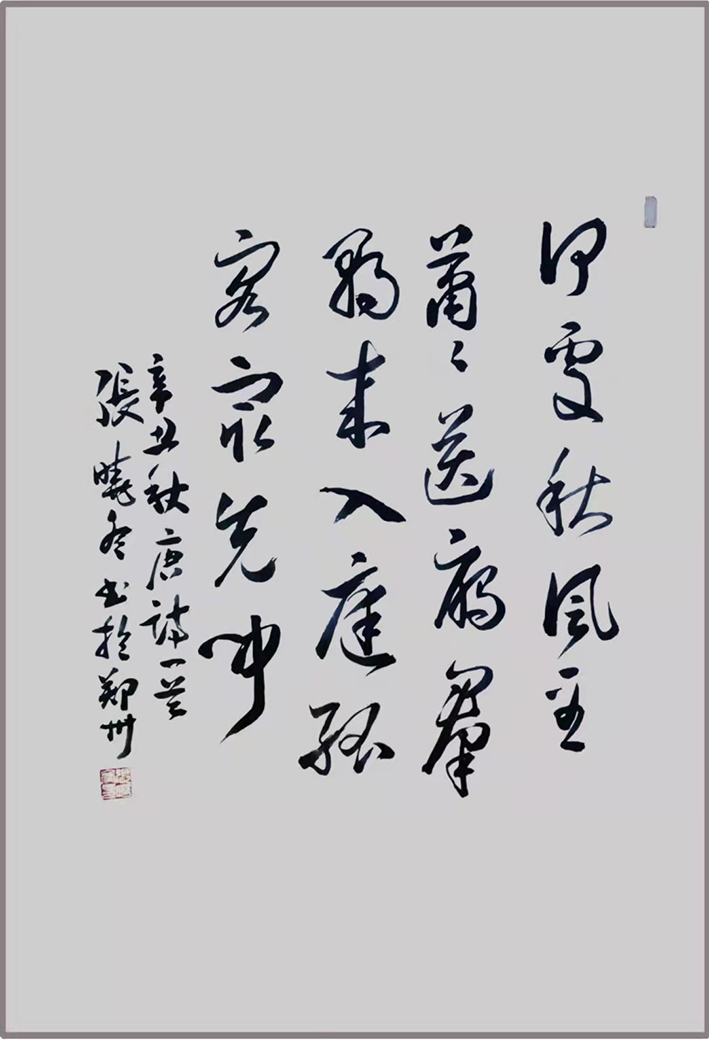 何處秋風至
蕭々送雁羣
朝来入庭孤
客㝡先聞
辛丑秋唐詩一首
張曉冬書於鄭州